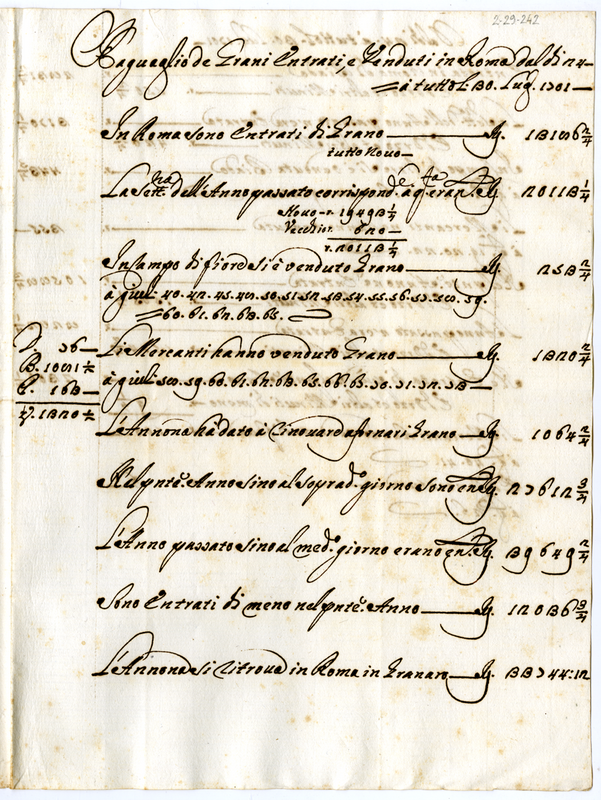 2-29-242
Raguaglio de Grani Entrati, e Venduti in Roma dal di 24
à tutto li 30. Lug. 1701
In Roma sono Entrati di Grano — rg. 13186 2/4
tutto Novo
La Sett.na dell'Anno passato corrispond.e à q.ta eran en.rg. 20113 1/4
Novo r. 19493 1/4
Vecchio r. 620
r. 20113 1/4
In Campo di fiore si è venduto Grano — rg. 253 2/4
à giuli 40. 42. 45. 48. 50. 51. 52. 53. 54. 55. 56. 57. 58. 59.
60. 61. 62. 63. 65.
76
B. 1081 1/2
163
rg. 1320 1/2
Li Mercanti hanno venduto Grano — rg. 1320 2/4
à giuli 58. 59. 60. 61. 62. 63. 65. 70. 71. 72. 73
L'Annona hà dato à Cinquardi fornari Grano — rg. 1064 2/4
Nel pnte Anno sino al soprad.o giorno sono en.rg. 27612 3/4
L'Anno passato sino al med.o giorno erano en.rg. 39649 2/4
Sono Entrati di meno nel pnte Anno — rg. 12036 3/4
L'Annona si ritrova in Roma in Granaro — rg. 33744:12